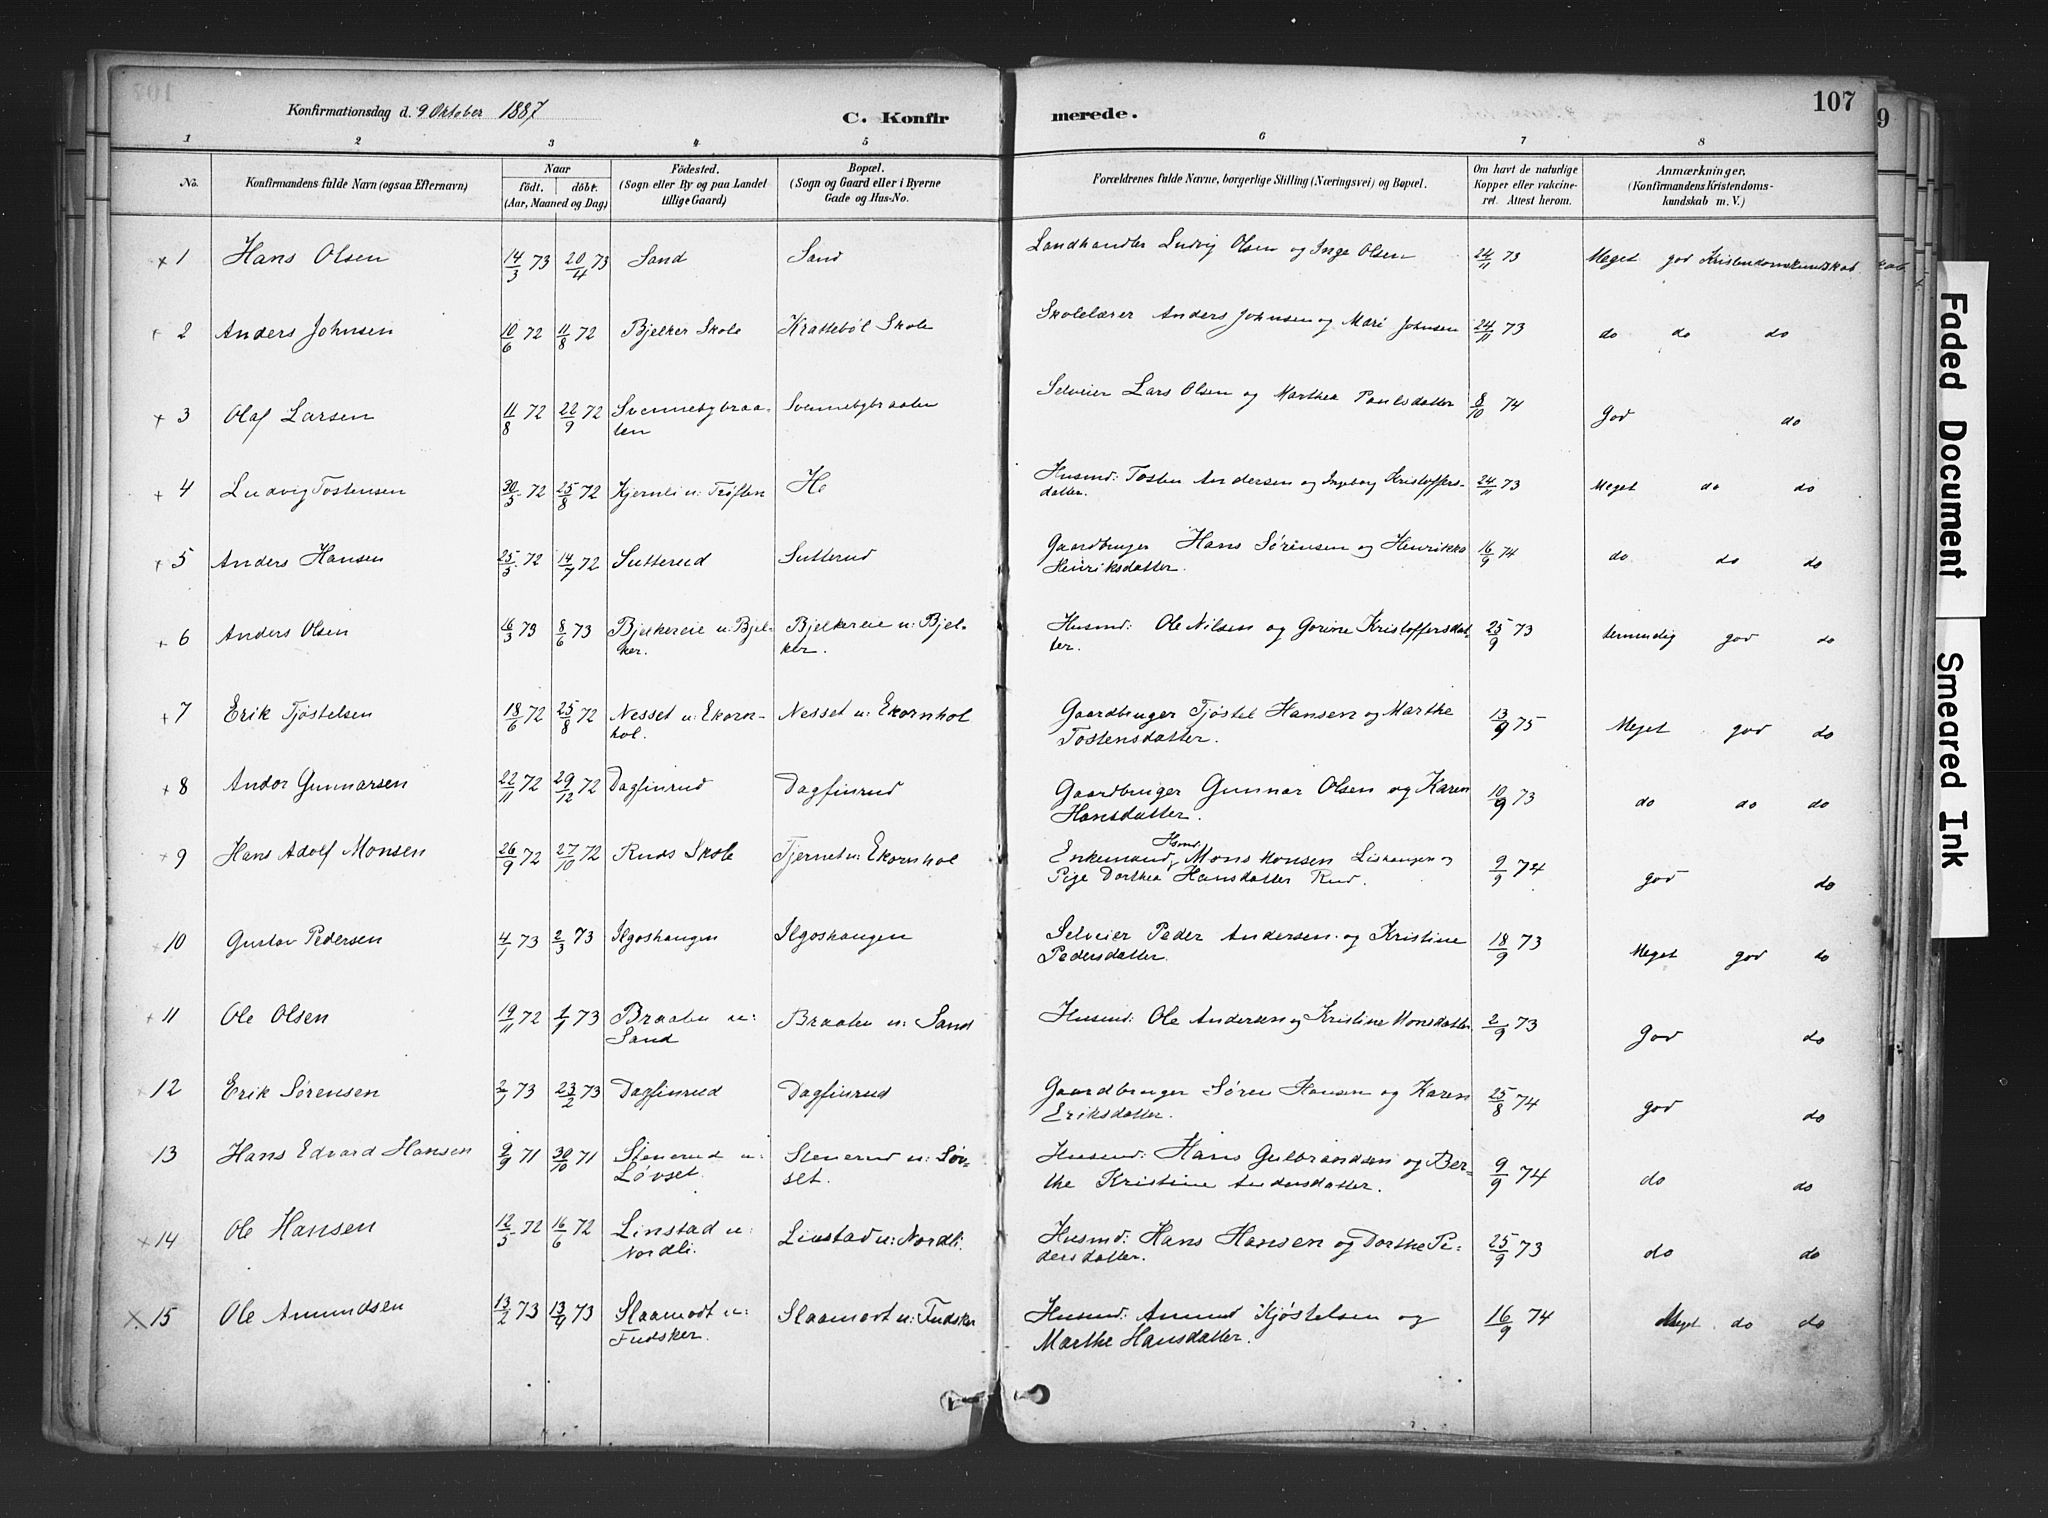 107
Konfirmationsdag d. 9 Oktober 1887
C. Konfirmerede.
1 2 3 4 5 6 7 8
No. Konfirmandens fulde Navn (ogsaa Efternavn) Naar født. døbt. (Aar, Maaned og Dag) Födested. (Sogn eller By og paa Landet tillige Gaard) Bopæl. (Sogn og Gaard eller i Byerne Gade og Hus-No. Forældrenes fulde Navne, borgerlige Stilling (Næringsvei) og Bopæl. Om havt de naturlige Kopper eller vakcineret. Attest herom. Anmærkninger, (Konfirmandens Kristendomskundskab m. V.)
1 Hans Olsen 14/3 73 20/4 73 Sand Sand Landhandler Ludvig Olsen og Inge Olsen 24/11 73 Meget god Kristendomskundskab
2 Anders Johnsen 10/6 72 11/8 72 Bjelker Skole Krattebøl Skole Skolelærer Anders Johnsen og Mari Johnsen 24/11 73 do do do
3 Olaf Larsen 11/8 72 22/9 72 Svennebybraaten Svennebybraaten Selveier Lars Olsen og Marthea Paulsdatter 8/10 74 God do
4 Ludvig Tostensen 30/5 72 25/8 72 Kjernli u: Trøften He Husmd: Tosten Andersen og Ingeborg Kristoffers-
datter. 24/11 73 Meget do do
5 Anders Hansen 25/5 72 14/7 72 Sutterud Sutterud Gaardbruger Hans Sørensen og Henrikka
Henriksdatter. 16/9 74 do do do
6 Anders Olsen 16/3 73 8/6 73 Bjelkereie u: Bjel-
ker. Bjelkereie u: Bjel-
ker. Husmd: Ole Nilsen og Gorine Kristoffersdat
ter. 25/9 73 temmelig god do
7 Erik Tjøstelsen 18/6 72 25/8 72 Nesset u: Ekorn-
hol. Nesset u: Ekornhol Gaardbruger Tjøstel Hansen og Marthe
Tostensdatter. 13/9 75 Meget god do
8 Andor Gunnarsen 22/11 72 29/12 72 Dagfinrud Dagfinrud Gaardbruger Gunnar Olsen og Karen
Hansdatter. 10/9 73 do do do
9 Hans Adolf Monsen 26/9 72 27/10 72 Ruds Skole Tjernet u: Ekornhol Enkemand, Husmd. Mons Monsen og
Pige Dorthea Hansdatter Rud. 9/9 74 god do
10 Gustav Pedersen 4/1 73 2/3 73 Ilgoshaugen Ilgoshaugen Selveier Peder Andersen og Kristine
Pedersdatter. 18/9 73 Meget god do
11 Ole Olsen 19/11 72 1/1 73 Braaten u:
Sand Braaten u: Sand Husmd: Ole Andersen og Kristine Monsdatter 2/9 73 God do
12 Erik Sørensen 2/1 73 23/2 73 Dagfinrud Dagfinrud Gaardbruger Søren Hansen og Karen
Eriksdatter. 25/8 74 god do
13 Hans Edvard Hansen 2/9 71 30/10 71 Stenerud u:
Løvset. Stenerud u: Løv-
set. Husmd: Hans Gulbrandsen og Ber-
the Kristine Andersdatter. 9/9 74 do do
14 Ole Hansen 12/5 72 16/6 72 Linstad u:
Nordli. Linstad u: Nordli. Husmd: Hans Hansen og Dorthe Pe-
dersdatter. 25/9 73 do do
15 Ole Amundsen 13/2 73 13/4 73 Slaamodt u:
Fudsker. Slaamodt u: Fudsker Husmd: Amund Kjøstelsen og
Marthe Hansdatter. 16/9 74 Meget do do
Faded Document
Smeared Ink